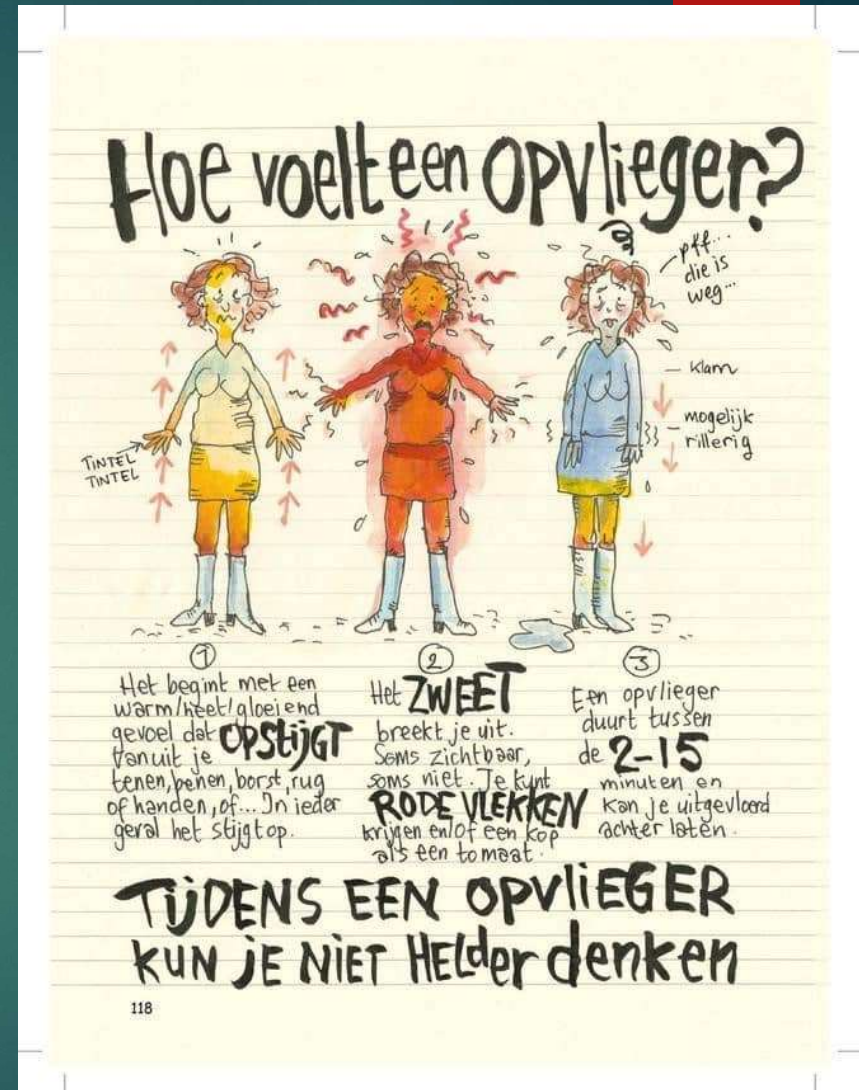 Hoe voelt een opvlieger?
pff...
die is
weg...
klam
mogelijk
rillerig
TINTEL
TINTEL
1
Het begint met een
warm/heet/gloeiend
gevoel dat OPSTIJGT
vanuit je
tenen, benen, borst, rug
of handen, of... In ieder
geval het stijgt op.
2
Het ZWEET
breekt je uit.
Soms zichtbaar,
soms niet. Je kunt
RODE VLEKKEN
krijgen en/of een kop
als een tomaat.
3
Een opvlieger
duurt tussen
de 2-15
minuten en
kan je uitgevloerd
achter laten.
TIJDENS EEN OPVLIEGER
KUN JE NIET HELder denken
118